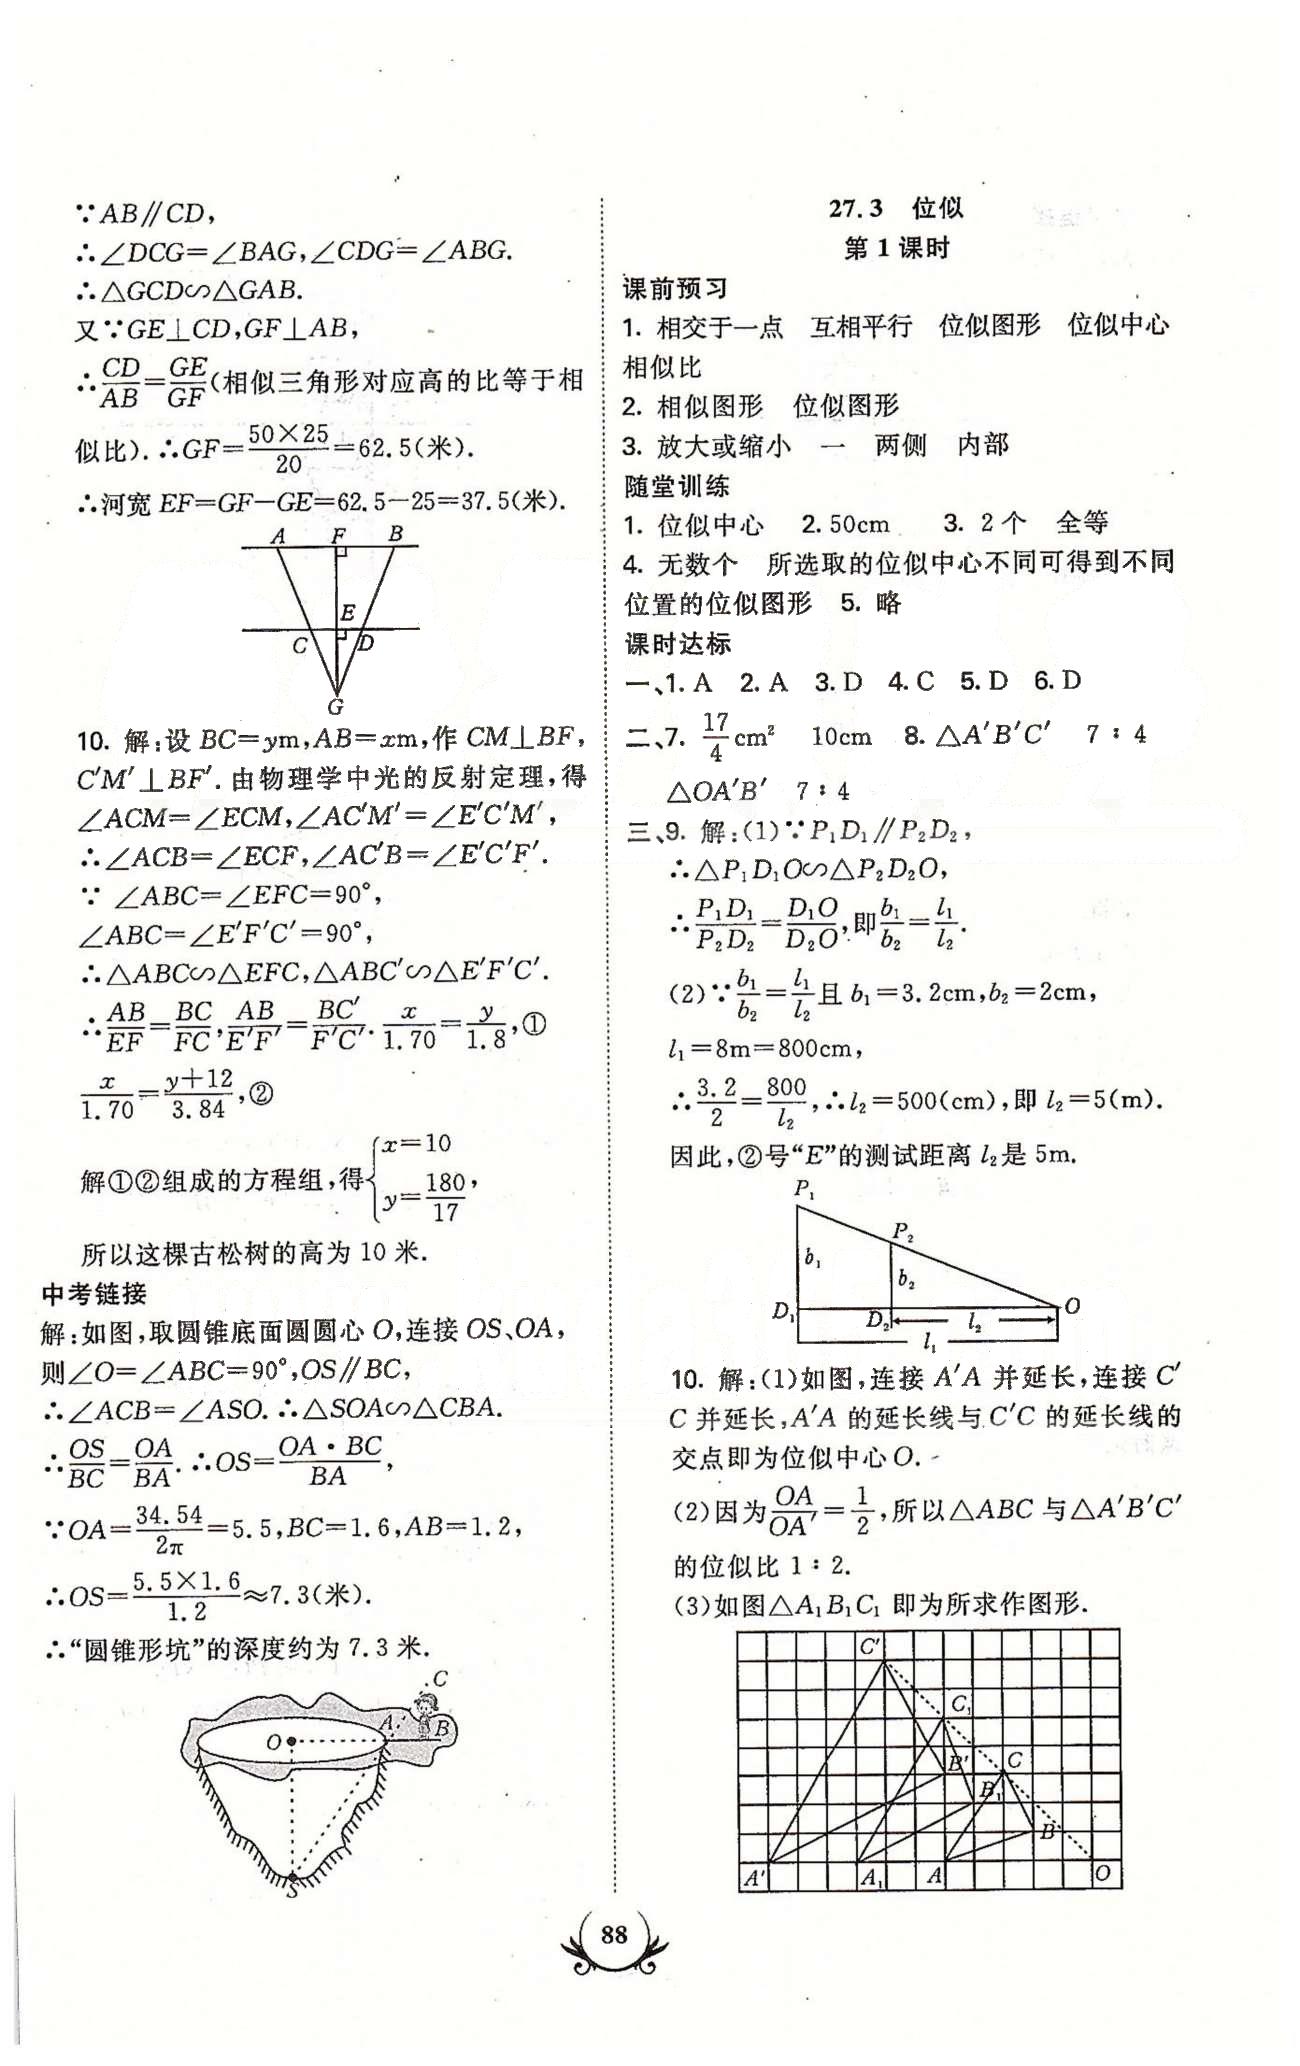 ∵AB∥CD,
∴∠DCG=∠BAG,∠CDG=∠ABG.
∴△GCD∽△GAB.
又∵GE⊥CD,GF⊥AB,
∴CD/AB=GE/GF(相似三角形对应高的比等于相
似比).∴GF=50×25/20=62.5(米).
∴河宽 EF=GF-GE=62.5-25=37.5(米).
A F B
E
C D
G
10. 解:设 BC=ym,AB=xm,作 CM⊥BF,
C′M′⊥BF′.由物理学中光的反射定理,得
∠ACM=∠ECM,∠AC′M′=∠E′C′M′,
∴∠ACB=∠ECF,∠AC′B=∠E′C′F′.
∵ ∠ABC=∠EFC=90°,
∠ABC=∠E′F′C′=90°,
∴△ABC∽△EFC,△ABC′∽△E′F′C′.
∴AB/EF=BC/FC,AB/E′F′=BC′/F′C′.x/1.70=y/1.8,①
x/1.70=y+12/3.84,②
解①②组成的方程组,得{x=10
y=180/17,
所以这棵古松树的高为 10 米.
中考链接
解:如图,取圆锥底面圆圆心 O,连接 OS、OA,
则∠O=∠ABC=90°,OS∥BC,
∴∠ACB=∠ASO.∴△SOA∽△CBA.
∴OS/BC=OA/BA.∴OS=OA·BC/BA,
∵OA=34.54/2π=5.5,BC=1.6,AB=1.2,
∴OS=5.5×1.6/1.2≈7.3(米).
∴“圆锥形坑”的深度约为 7.3 米.
C
O A B
S
27.3 位似
第 1 课时
课前预习
1. 相交于一点 互相平行 位似图形 位似中心
相似比
2. 相似图形 位似图形
3. 放大或缩小 一 两侧 内部
随堂训练
1. 位似中心 2. 50cm 3. 2个 全等
4. 无数个 所选取的位似中心不同可得到不同
位置的位似图形 5. 略
课时达标
一、1. A 2. A 3. D 4. C 5. D 6. D
二、7. 17/4cm² 10cm 8. △A′B′C′ 7∶4
△OA′B′ 7∶4
三、9. 解:(1)∵P₁D₁∥P₂D₂,
∴△P₁D₁O∽△P₂D₂O,
∴P₁D₁/P₂D₂=D₁O/D₂O,即b₁/b₂=l₁/l₂.
(2)∵b₁/b₂=l₁/l₂且 b₁=3.2cm,b₂=2cm,
l₁=8m=800cm,
∴3.2/2=800/l₂,∴l₂=500(cm),即 l₂=5(m).
因此,②号“E”的测试距离 l₂是 5m.
P₁
P₂
b₁
b₂
D₁ D₂ l₂ O
l₁
10. 解:(1)如图,连接 A′A 并延长,连接 C′
C 并延长,A′A 的延长线与 C′C 的延长线的
交点即为位似中心 O.
(2)因为OA/OA′=1/2,所以△ABC 与△A′B′C′
的位似比 1∶2.
(3)如图△A₁B₁C₁ 即为所求作图形.
C′
C₁
B′ C
B₁
B
A′ A₁ A O
88